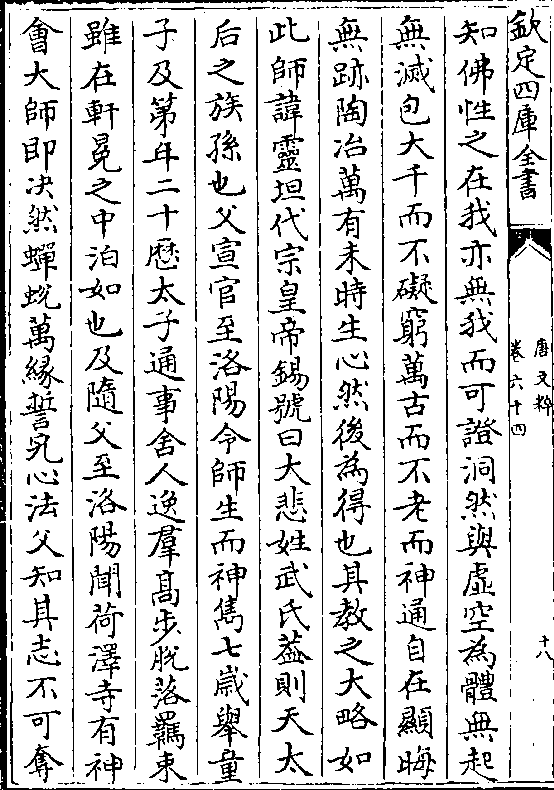 欽定四庫全書
唐文粹
卷六十四
十八
知佛性之在我亦無我而可證洞然與虛空為體無起
無滅包大千而不礙窮萬古而不老而神通自在顯晦
無跡陶冶萬有未時生心然後為得也其教之大略如
此師諱靈坦代宗皇帝錫號曰大悲姓武氏葢則天太
后之族孫也父宣官至洛陽令師生而神雋七歲舉童
子及第年二十歷太子通事舍人逸羣高步脫落羈束
雖在軒冕之中泊如也及隨父至洛陽聞荷澤寺有神
會大師即決然蟬蛻萬緣誓究心法父知其志不可奪